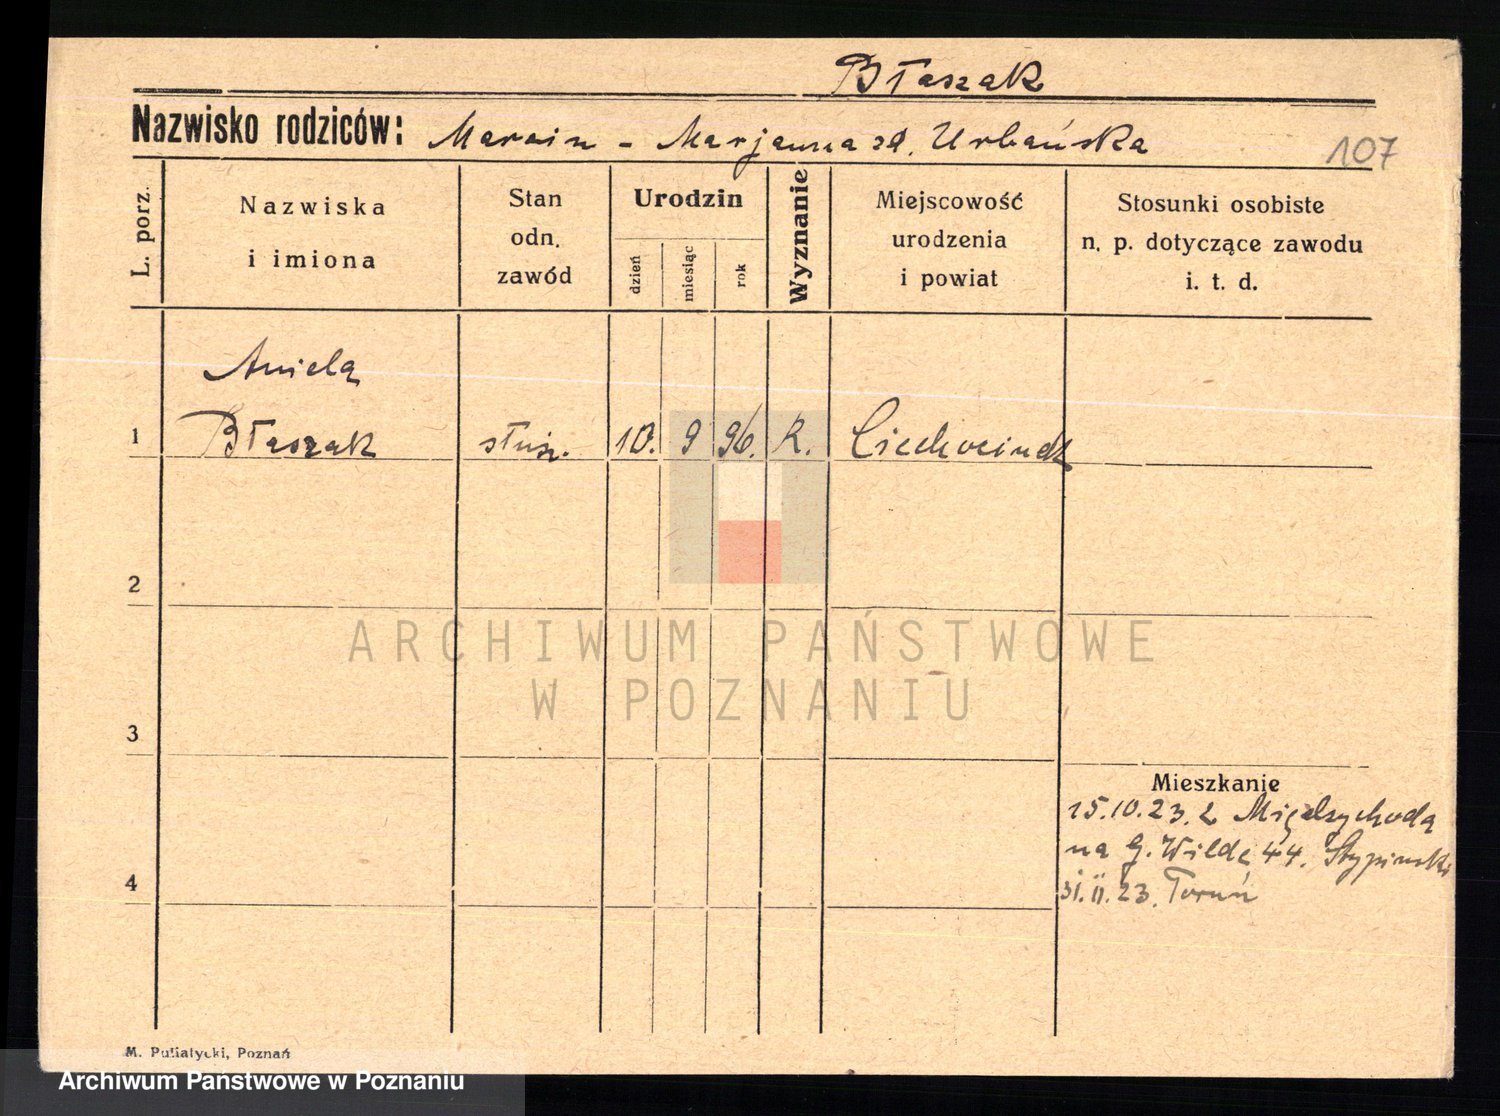 Błaszak
Nazwisko rodziców: Marcin - Marjanna zd. Urbańska
107
L. porz.
Nazwiska
i imiona
Stan
odn.
zawód
Urodzin
dzień
miesiąc
rok
Wyznanie
Miejscowość
urodzenia
i powiat
Stosunki osobiste
n. p. dotyczące zawodu
i. t. d.
Aniela
1 Błaszak służ. 10. 9 96. K. Ciechocinek
2
ARCHIWUM PAŃSTWOWE
W POZNANIU
3
Mieszkanie
15.10.23. z Międzychoda
na G. Wildę 44. Stypinski
4
31.11.23. Toruń
M. Putiatycki, Poznań
Archiwum Państwowe w Poznaniu